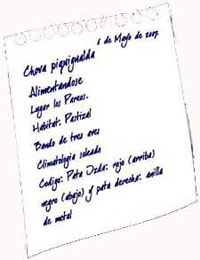 6 de Mayo de 2007
Chova piquigualda
Alimentandose
Lugar los Pareos.
Habitat: Pastizal
Bando de tres aves
Climatologia soleado
Codigo: Pata Izda: rojo (arriba)
negro (abajo) y pata derecha: anilla
de metal